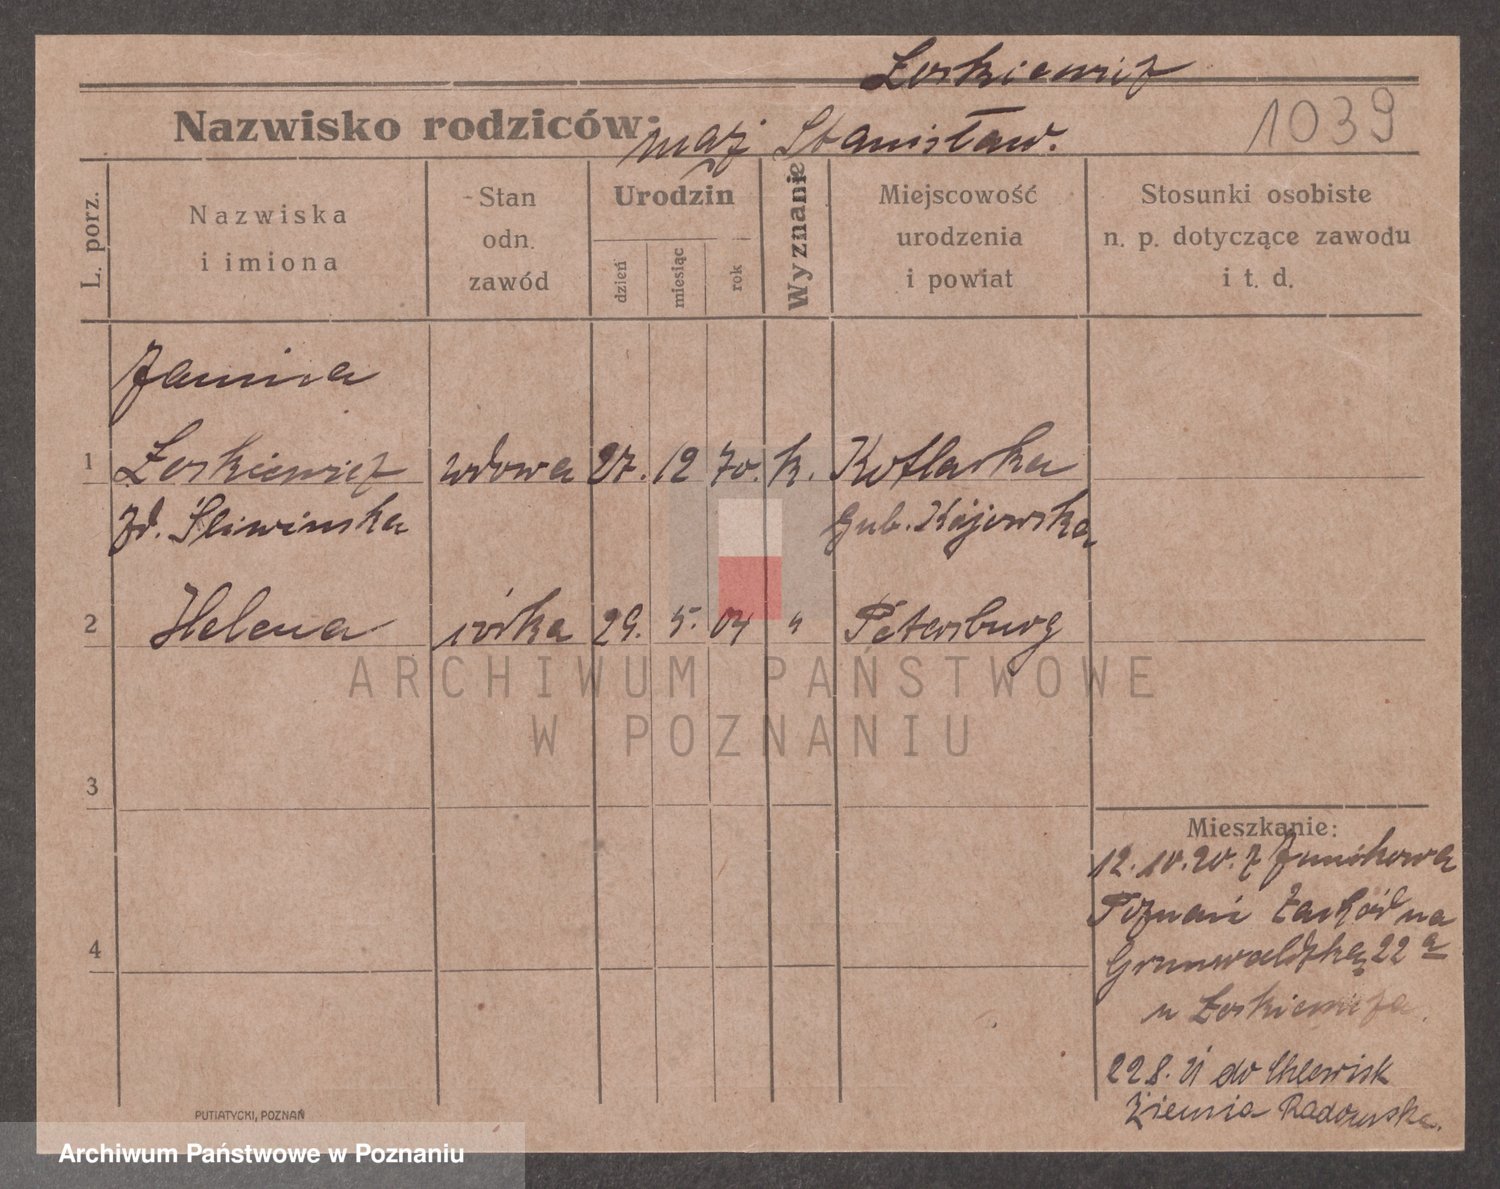 Łoskiewicz
Nazwisko rodziców: mąż Stanisław.
1039
L. porz.
Nazwiska
i imiona
Stan
odn.
zawód
Urodzin
dzień
miesiąc
rok
Wyznanie
Miejscowość
urodzenia
i powiat
Stosunki osobiste
n. p. dotyczące zawodu
i t. d.
Janina
1 Łoskiewicz wdowa 27. 12 70. k. Kotlarka
zd. Śliwińska gub. Kijowska
2 Helena córka 29. 5. 04 " Petersburg
3
4
Mieszkanie:
12.10.20. z Junikowa
Poznań Zachód na
Grunwaldzką 22 a
u Łoskiewicza.
22 8. 21 do Chlewisk
Ziemia Radomska.
PUTIATYCKI, POZNAŃ
ARCHIWUM PAŃSTWOWE
W POZNANIU
Archiwum Państwowe w Poznaniu